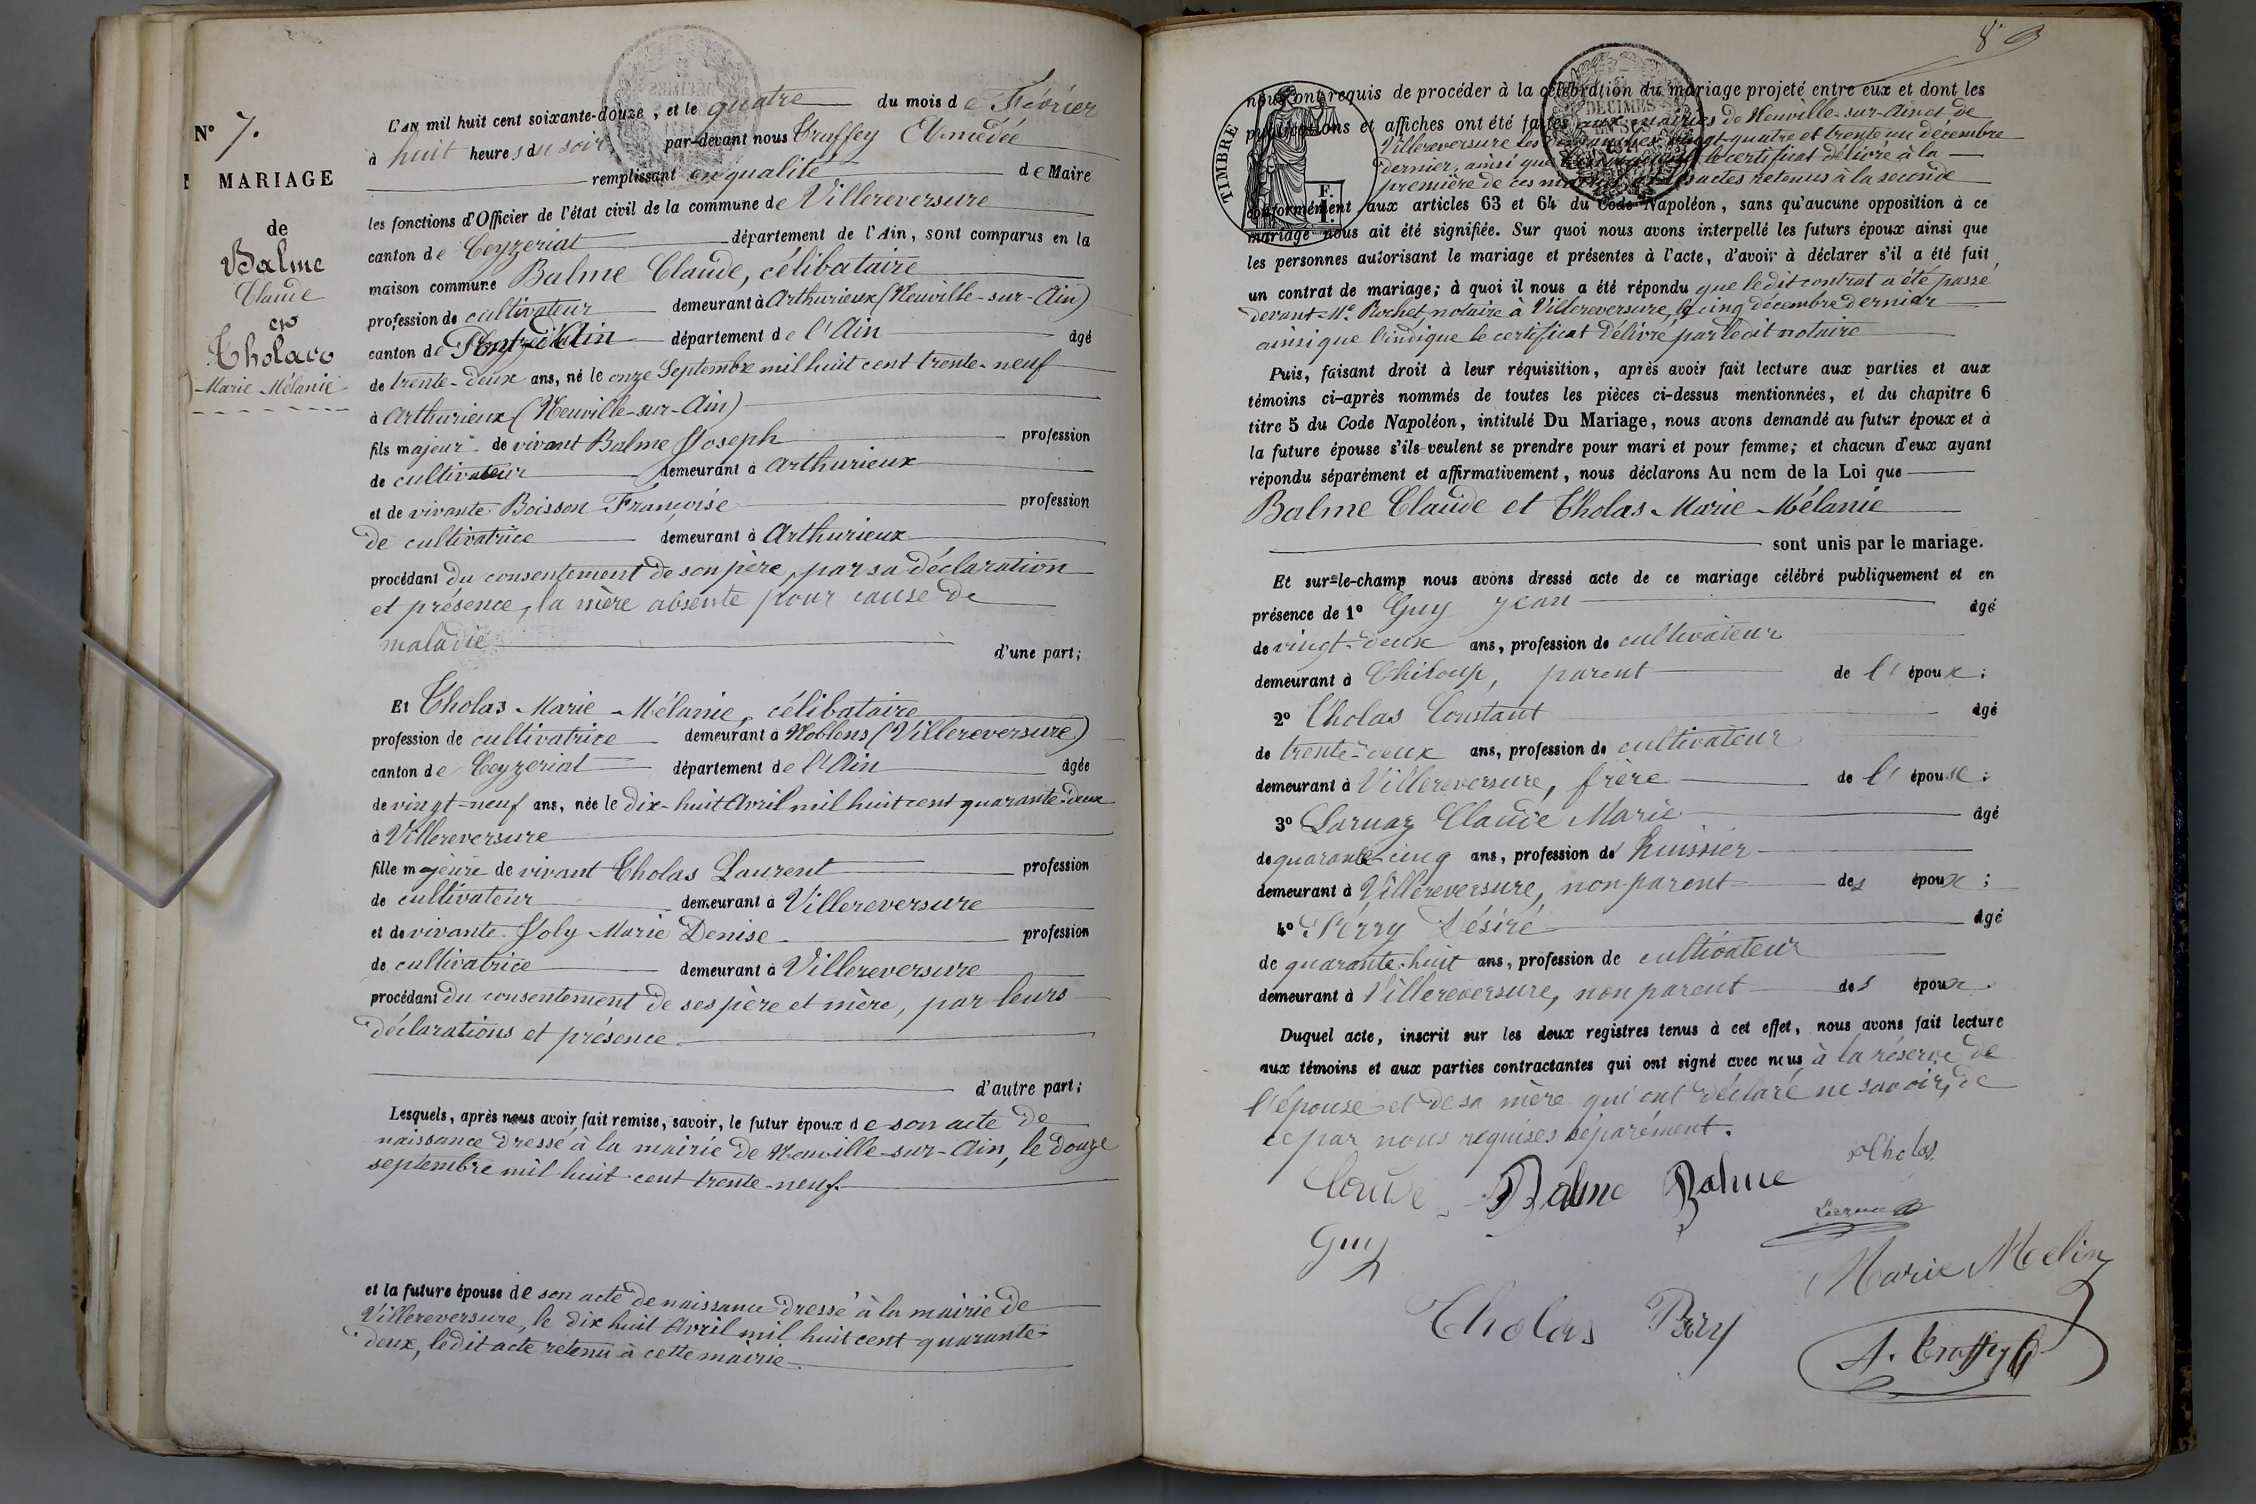 N° 7.
MARIAGE
de
Balme
Claude
et
Tholas
Marie Mélanie
L'AN mil huit cent soixante-douze, et le quatre du mois de Février
à huit heures du soir par-devant nous Truffey Amédée
remplissant en qualité de Maire
les fonctions d'Officier de l'état civil de la commune de Villereversure
canton de Ceyzeriat département de l'Ain, sont comparus en la
maison commune Balme Claude, célibataire
profession de cultivateur demeurant à Arthurieux (Neuville-sur-Ain)
canton de Pont-d'Ain département de l'Ain âgé
de trente-deux ans, né le onze Septembre mil huit cent trente-neuf
à Arthurieux (Neuville-sur-Ain)
fils majeur de vivant Balme Joseph profession
de cultivateur demeurant à Arthurieux
et de vivante Boisson Françoise profession
de cultivatrice demeurant à Arthurieux
procédant du consentement de son père, par sa déclaration
et présence, la mère absente pour cause de
maladie
d'une part;
Et Tholas Marie Mélanie, célibataire
profession de cultivatrice demeurant à Noblens (Villereversure)
canton de Ceyzeriat département de l'Ain âgée
de vingt-neuf ans, née le Dix-huit Avril mil huit cent quarante-deux
à Villereversure
fille majeure de vivant Tholas Laurent profession
de cultivateur demeurant à Villereversure
et de vivante Joly Marie Denise profession
de cultivatrice demeurant à Villereversure
procédant du consentement de ses père et mère, par leurs
déclarations et présence
d'autre part;
Lesquels, après nous avoir fait remise, savoir, le futur époux de son acte de
naissance dressé à la mairie de Neuville-sur-Ain, le douze
septembre mil huit cent trente-neuf.
et la future épouse de son acte de naissance dressé à la mairie de
Villereversure, le dix huit Avril mil huit cent quarante-
deux, ledit acte retenu à cette mairie.
89
TIMBRE
DECIMES
EN SUS
nous ont requis de procéder à la célébration du mariage projeté entre eux et dont les
publications et affiches ont été faites aux mairies de Neuville-sur-Ain et de
Villereversure les dimanches vingt-quatre et trente un décembre
dernier, ainsi que le certificat délivré à la
première de ces mairies actes retenus à la seconde
conformément aux articles 63 et 64 du Code Napoléon, sans qu'aucune opposition à ce
mariage nous ait été signifiée. Sur quoi nous avons interpellé les futurs époux ainsi que
les personnes autorisant le mariage et présentes à l'acte, d'avoir à déclarer s'il a été fait
un contrat de mariage; à quoi il nous a été répondu que ledit contrat a été passé
devant Me Rochet notaire à Villereversure, le cinq décembre dernier
ainsi que l'indique le certificat délivré par ledit notaire
Puis, faisant droit à leur réquisition, après avoir fait lecture aux parties et aux
témoins ci-après nommés de toutes les pièces ci-dessus mentionnées, et du chapitre 6
titre 5 du Code Napoléon, intitulé Du Mariage, nous avons demandé au futur époux et à
la future épouse s'ils veulent se prendre pour mari et pour femme; et chacun d'eux ayant
répondu séparément et affirmativement, nous déclarons Au nom de la Loi que
Balme Claude et Tholas Marie Mélanie
sont unis par le mariage.
Et sur-le-champ nous avons dressé acte de ce mariage célébré publiquement et en
présence de 1° Guy Jean âgé
de vingt-deux ans, profession de cultivateur
demeurant à Chiloup, parent de l'époux;
2° Tholas Constant âgé
de trente-deux ans, profession de cultivateur
demeurant à Villereversure, frère de l'épouse;
3° Larnaz Claude Marie âgé
de quarante-cinq ans, profession de huissier
demeurant à Villereversure, non parent des époux;
4° Perry Désiré âgé
de quarante-huit ans, profession de cultivateur
demeurant à Villereversure, non parent des époux.
Duquel acte, inscrit sur les deux registres tenus à cet effet, nous avons fait lecture
aux témoins et aux parties contractantes qui ont signé avec nous à la réserve de
l'épouse et de sa mère qui ont déclaré ne savoir, de
ce par nous requises séparément.
Tholas
Claude Balme Balme
Larnaz
Guy
Marie Melin
Tholas Pery
A. Truffey